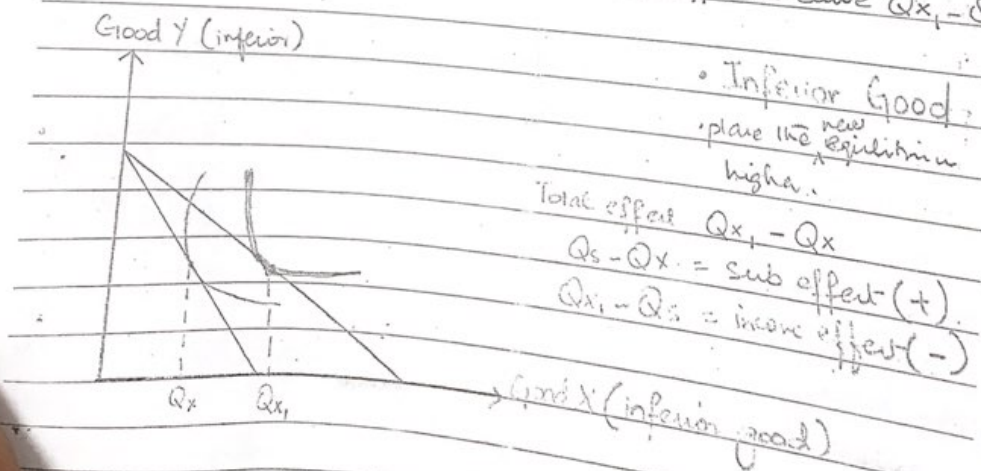 Qx₁ -
Good Y (inferior)
• Inferior Good:
• place the new equilibrium
higher.
Total effect Qx₁ - Qx
Qs - Qx = sub effect (+)
Qx₁ - Qs = income effect (-)
Qx Qx₁
Good X (inferior good)